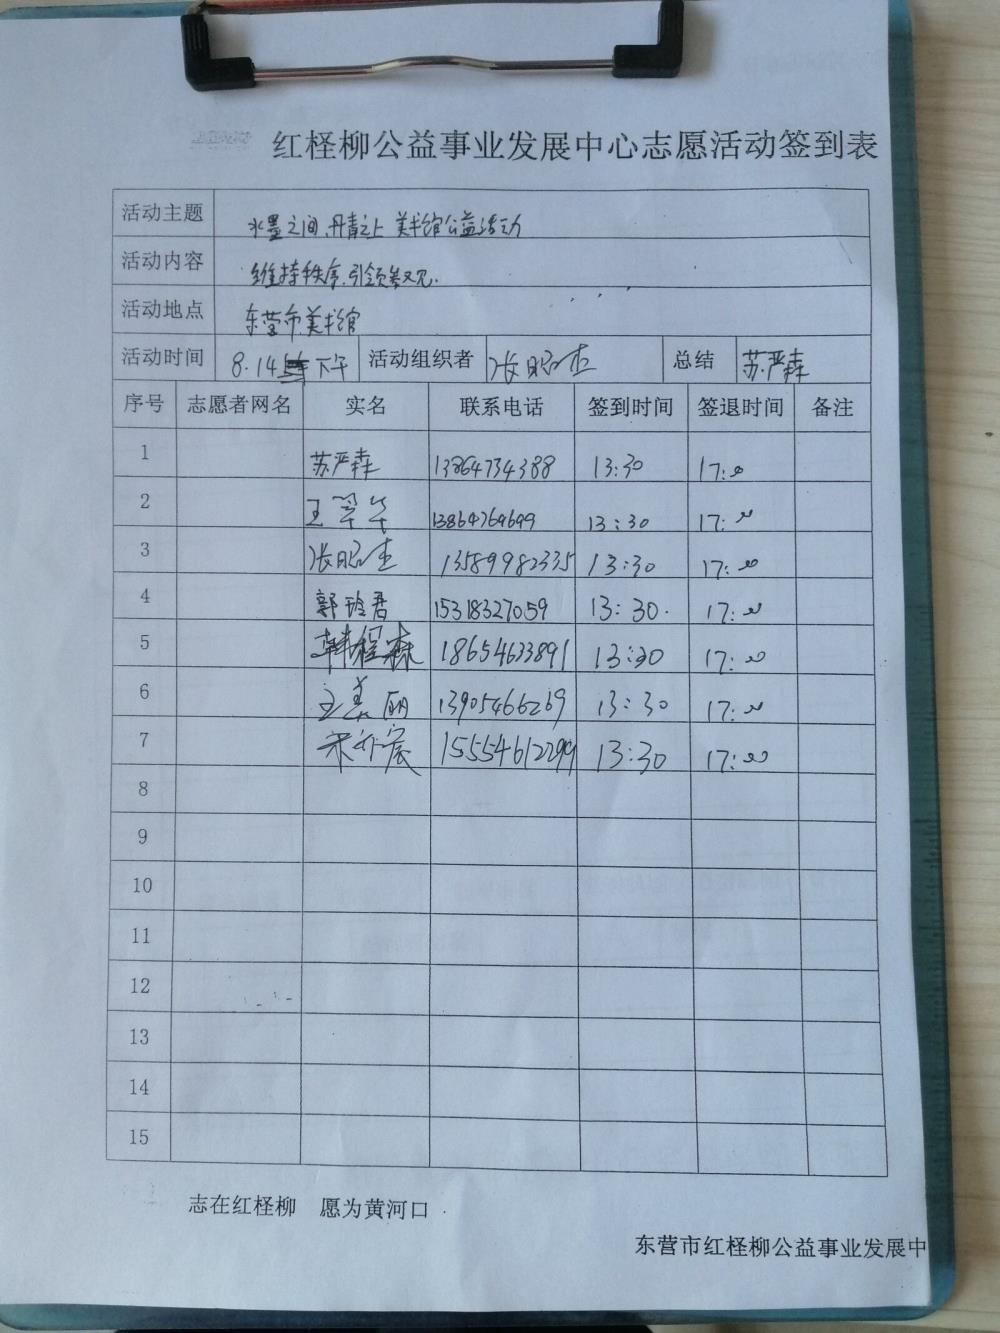 红柽柳公益事业发展中心志愿活动签到表
活动主题 水墨之间、丹青之上 美术馆公益活动
活动内容 维持秩序、引领参观.
活动地点 东营市美术馆
活动时间 8.14 下午 活动组织者 张昭杰 总结 苏严森
序号 志愿者网名 实名 联系电话 签到时间 签退时间 备注
1 苏严森 13864734388 13:30 17:00
2 王 13864769699 13:30 17:00
3 张昭杰 13589982335 13:30 17:00
4 郭玲君 15318327059 13:30. 17:00
5 韩程森 18654633891 13:30 17:00
6 王美丽 13905466269 13:30 17:00
7 宋 宸 15554612299 13:30 17:00
8
9
10
11
12
13
14
15
志在红柽柳 愿为黄河口
东营市红柽柳公益事业发展中